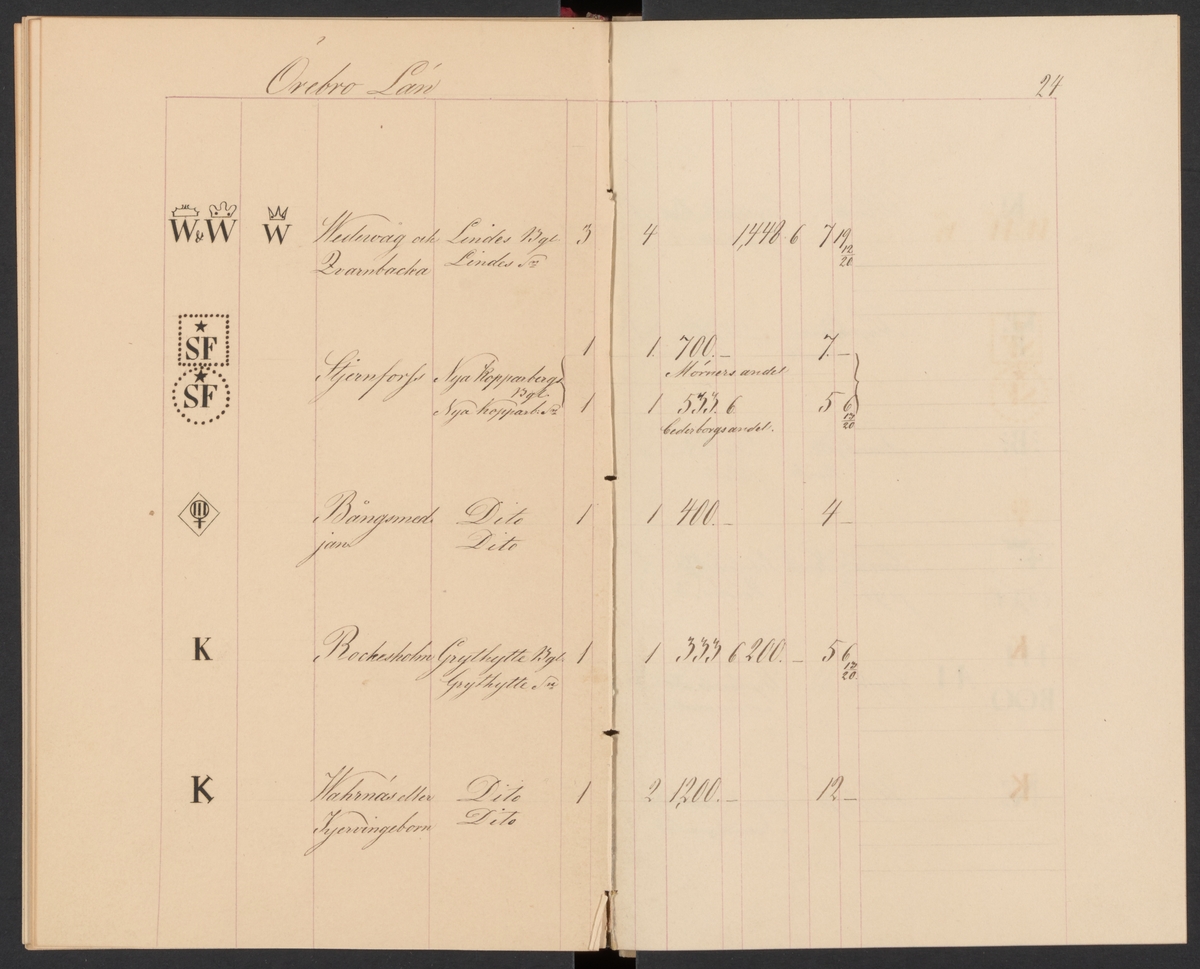 Örebro Län
24
W & W W Wedevåg och Lindes Bgl 3 4 1,448. 6 7 19
Qvarnbacka Lindes Sn 12/20
SF 1 1. 700. – 7. –
Stjernfors Nya Kopparbergs Mörners andel
SF Bgl
Nya Kopparb. Sn 1 1 533. 6 5 6
12/20
Cederborgs andel.
Bångsmed Dito 1 1 400. – 4 –
jan Dito
K Rockesholm Grythytte Bgl 1 1 333 6 200. – 5 6
Grythytte Sn 12/20.
K Wahrnäs eller Dito 1 2 1,200. – 12 –
Kjervingeborn Dito